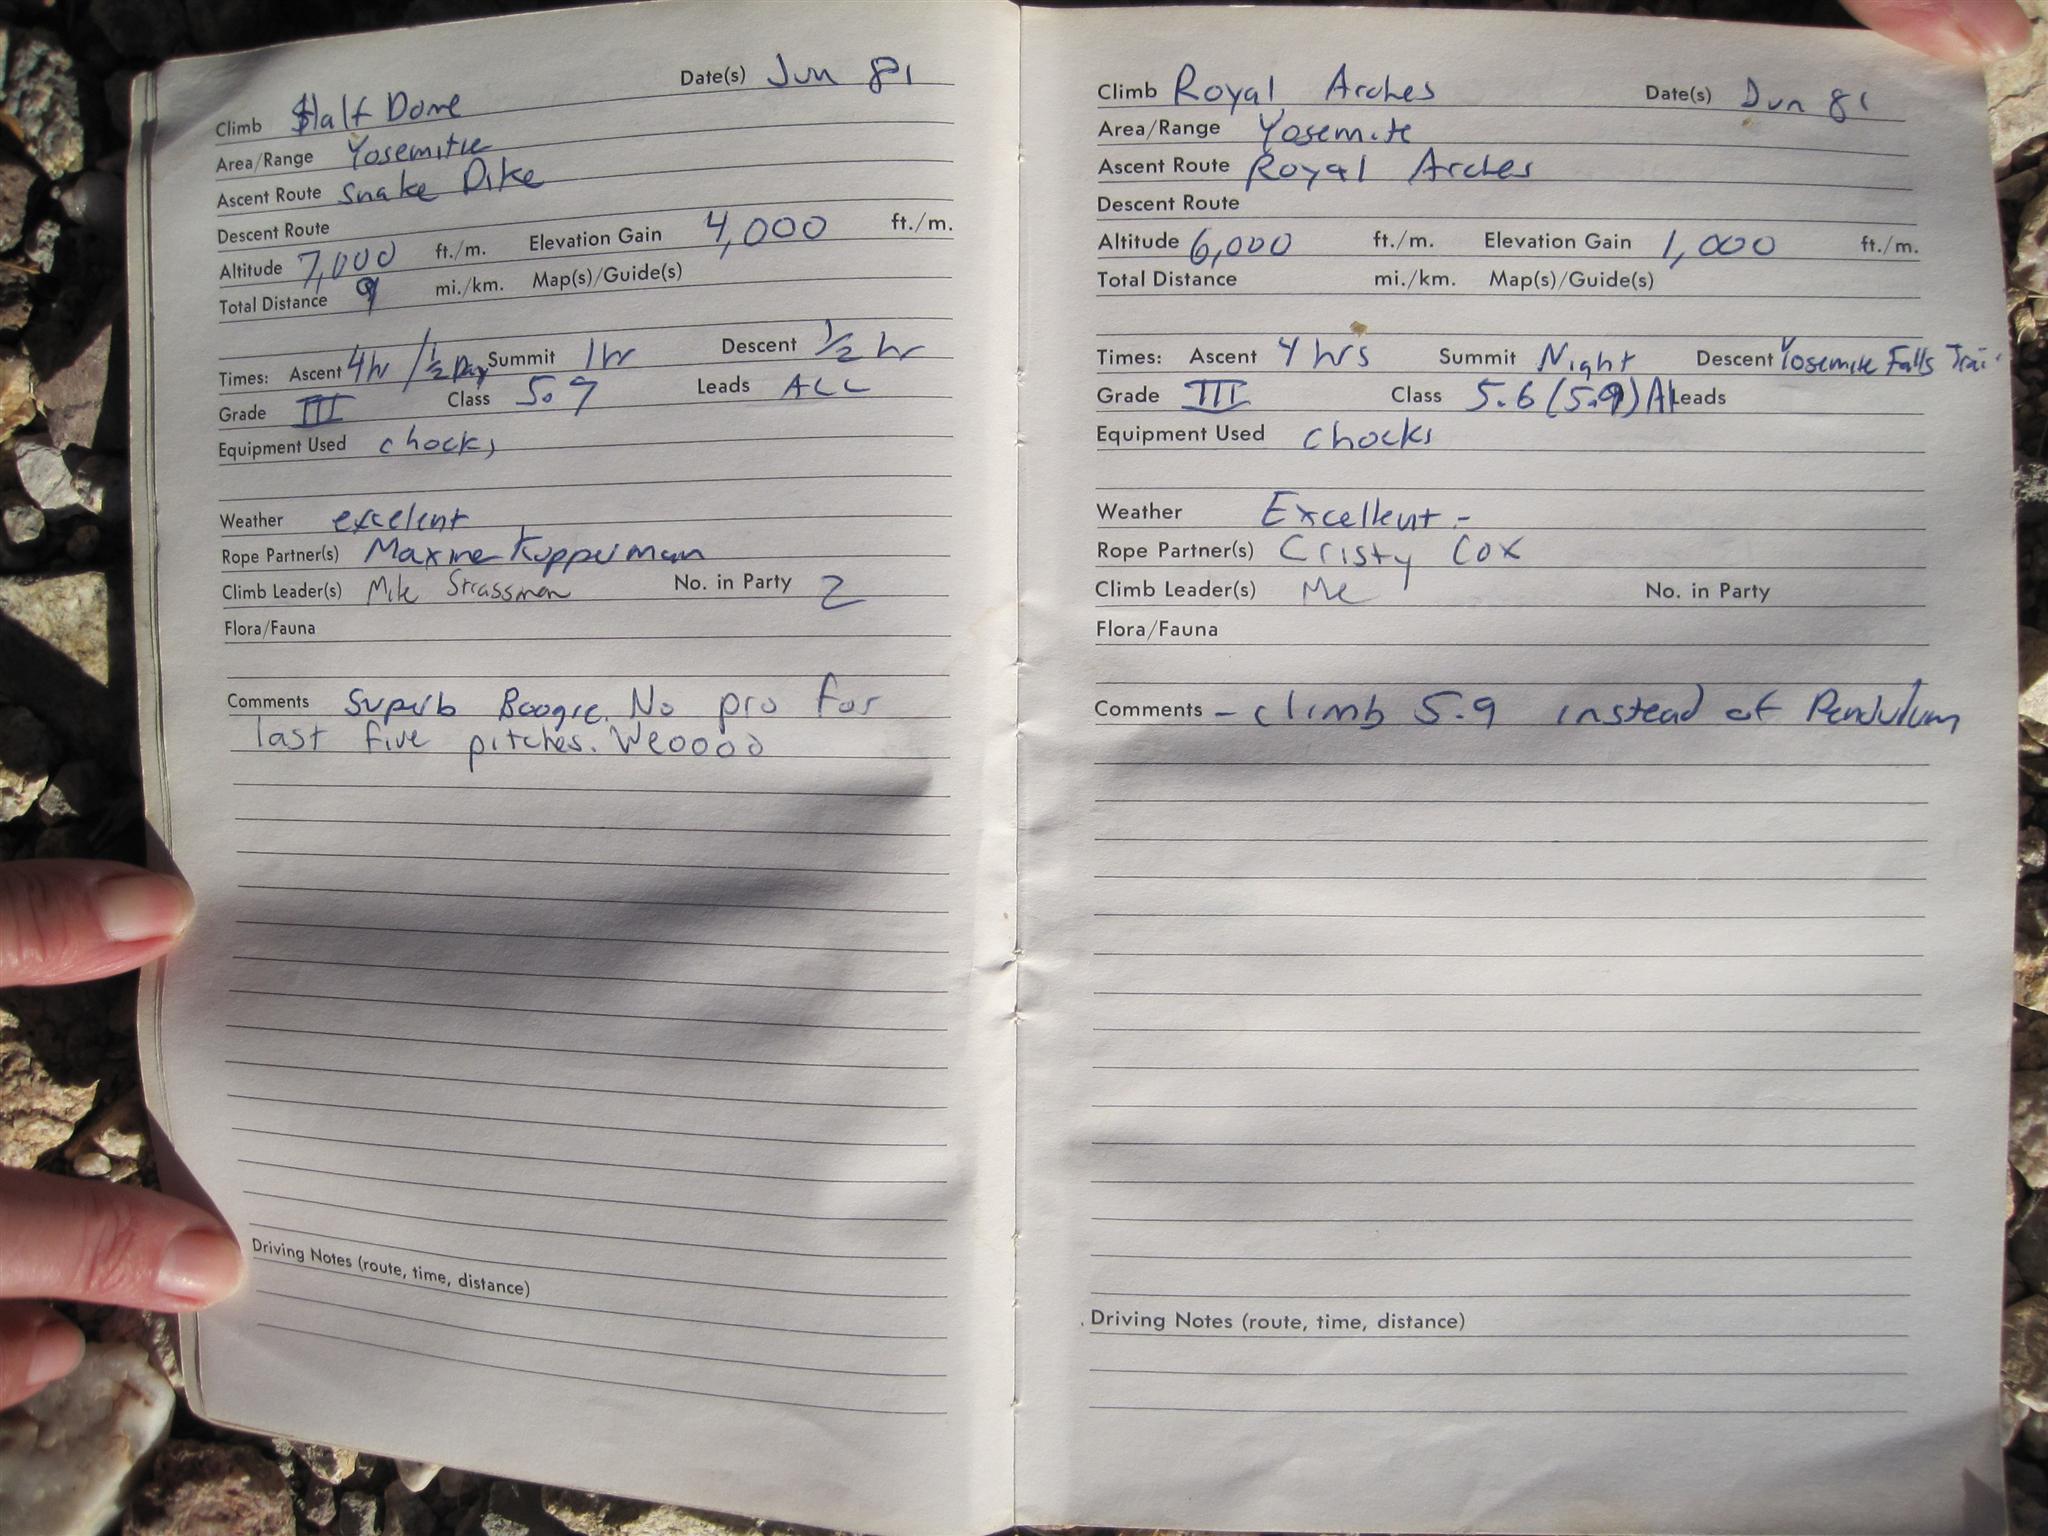 Date(s) Jun 81
Climb Half Dome
Area/Range Yosemite
Ascent Route Snake Dike
Descent Route
Altitude 7,000 ft./m. Elevation Gain 4,000 ft./m.
Total Distance 9 mi./km. Map(s)/Guide(s)
Times: Ascent 4hr / 1/2 Day Summit 1hr Descent 1/2 hr
Grade III Class 5.9 Leads ALL
Equipment Used chocks
Weather excelent
Rope Partner(s) Maxine Kupperman
Climb Leader(s) Mike Strassman No. in Party 2
Flora/Fauna
Comments Superb Boogie. No pro for
last five pitches. Weoooo
Driving Notes (route, time, distance)
Climb Royal Arches Date(s) Jun 81
Area/Range Yosemite
Ascent Route Royal Arches
Descent Route
Altitude 6,000 ft./m. Elevation Gain 1,000 ft./m.
Total Distance mi./km. Map(s)/Guide(s)
Times: Ascent 4 hrs Summit Night Descent Yosemite Falls Trai
Grade III Class 5.6 (5.9) A1 Leads
Equipment Used chocks
Weather Excellent -
Rope Partner(s) Cristy Cox
Climb Leader(s) Me No. in Party
Flora/Fauna
Comments - climb 5.9 instead of Pendulum
Driving Notes (route, time, distance)